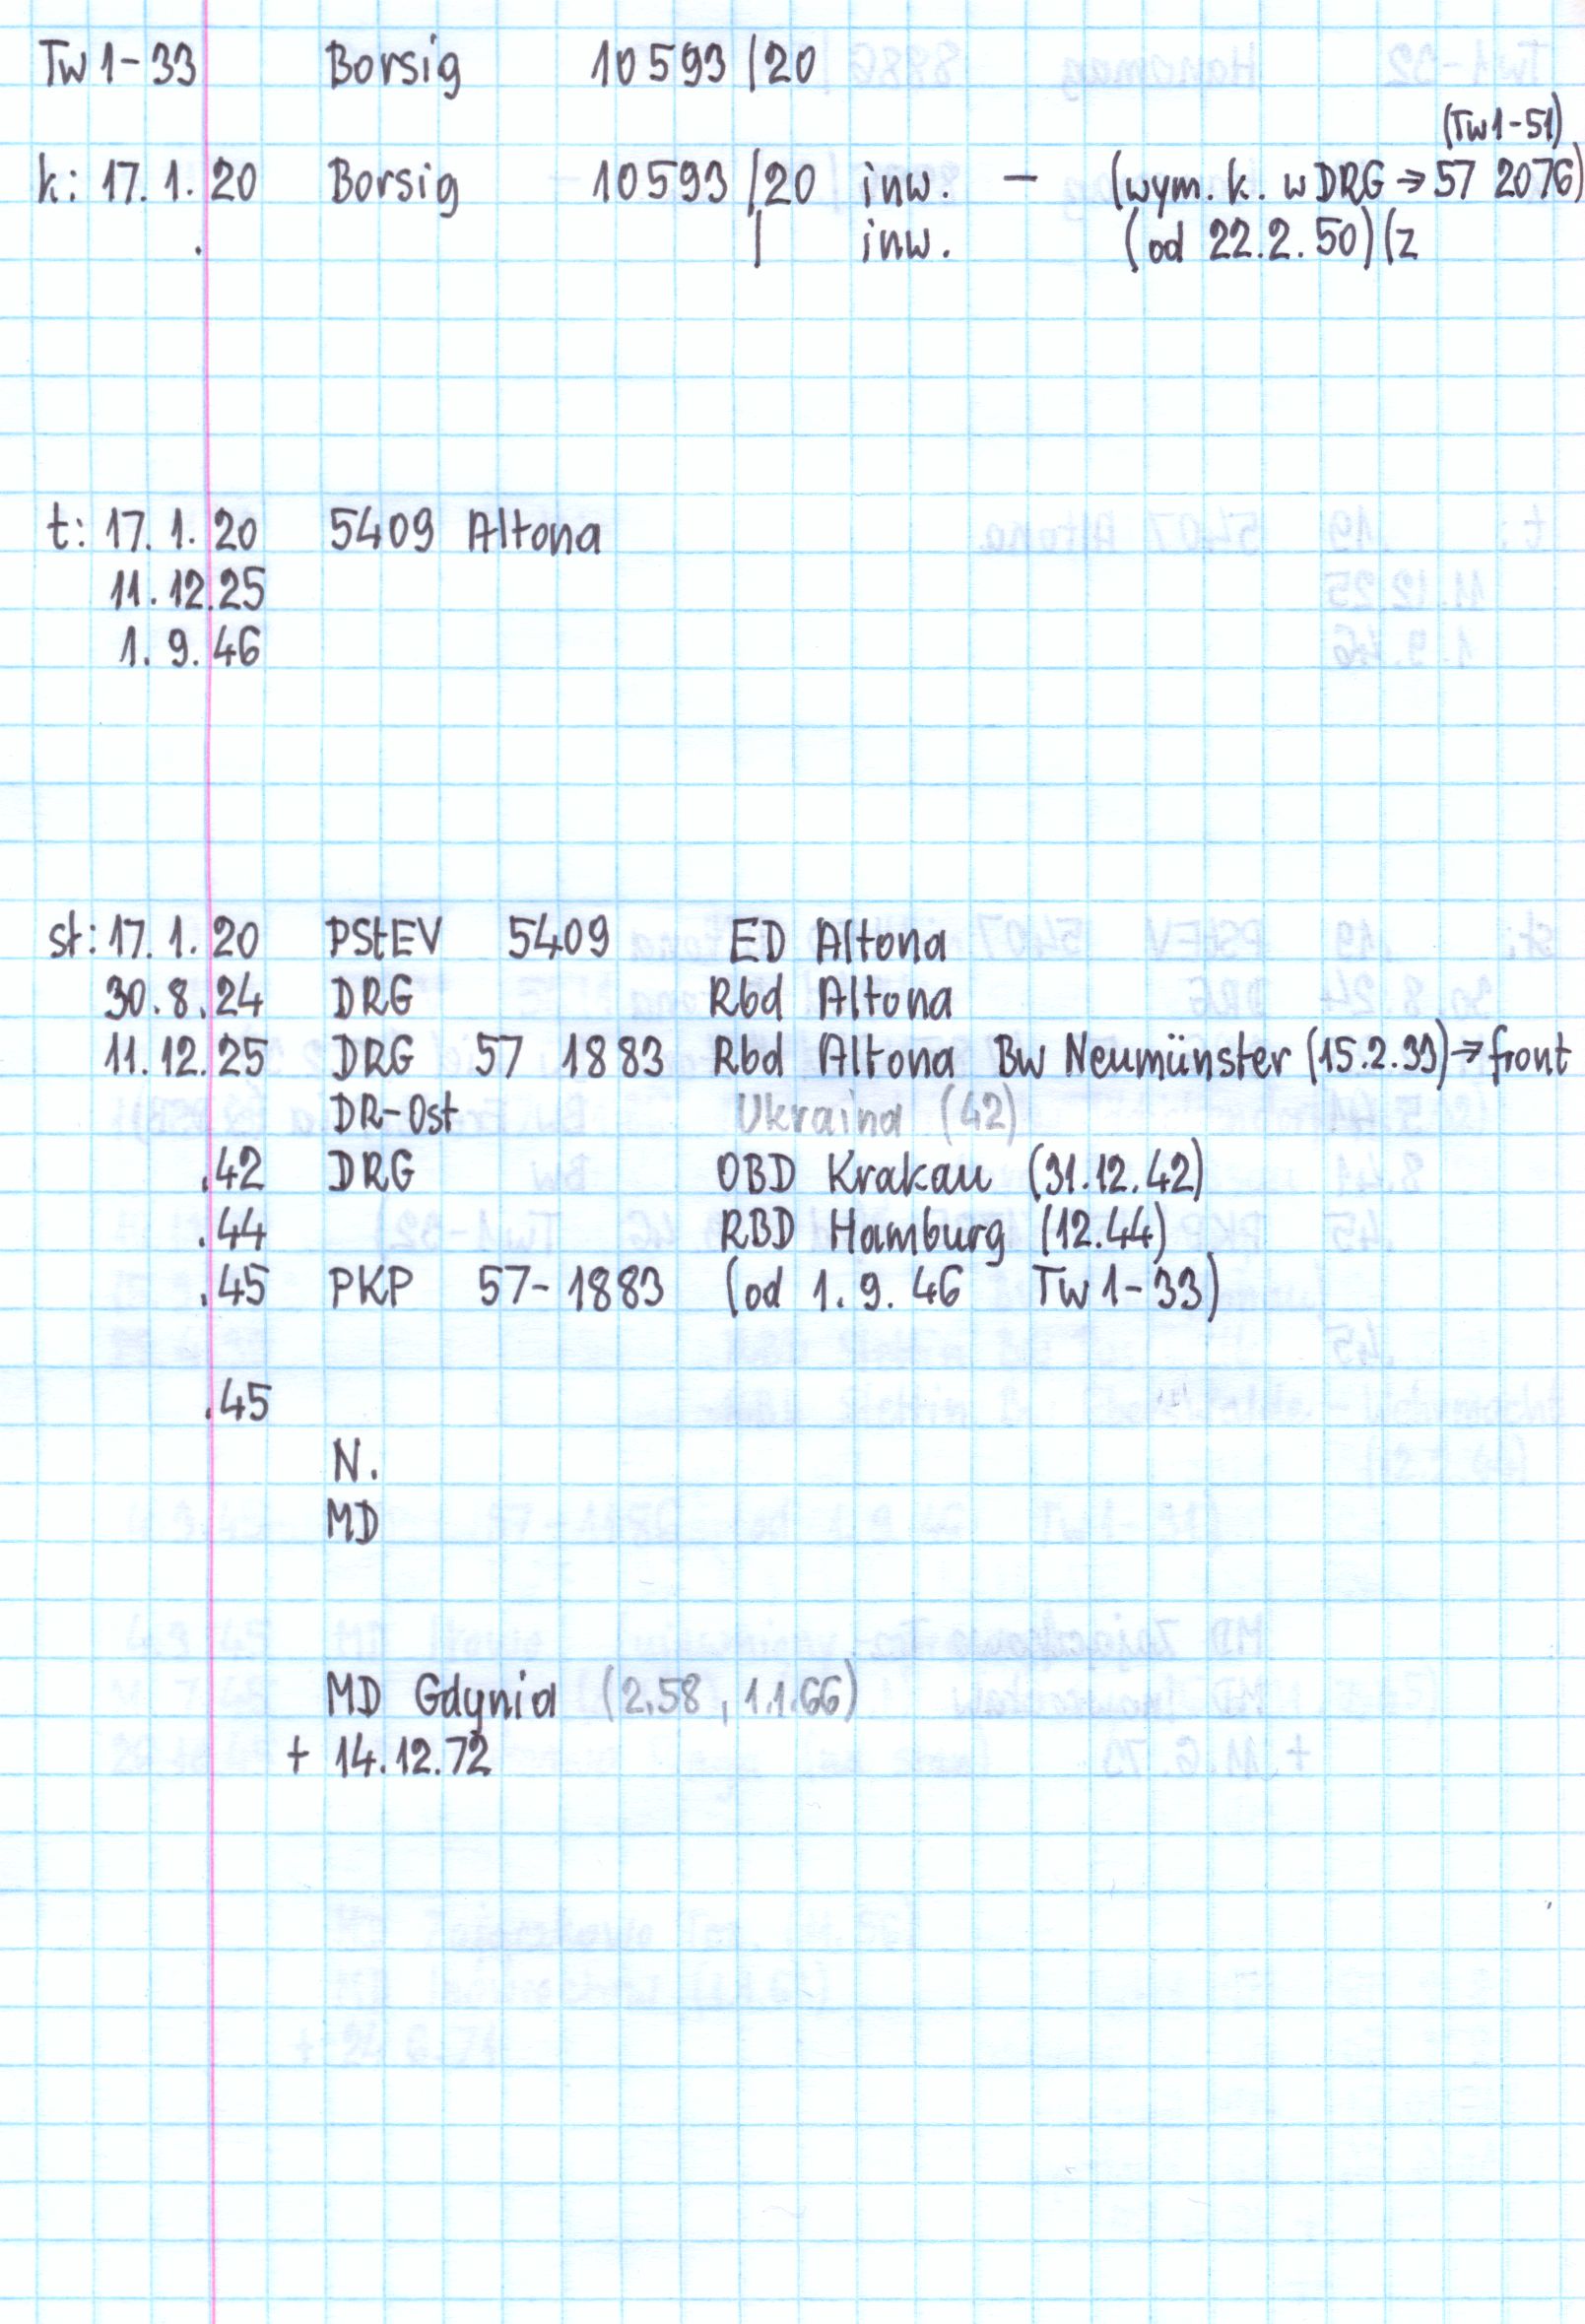 Tw 1-33 Borsig 10593/20
(Tw1-51)
k: 17.1.20 Borsig 10593/20 inw. — (wym. k. w DRG → 57 2076)
. / inw. (od 22.2.50)(z
t: 17.1.20 5409 Altona
11.12.25
1.9.46
st: 17.1.20 PStEV 5409 ED Altona
30.8.24 DRG Rbd Altona
11.12.25 DRG 57 1883 Rbd Altona Bw Neumünster (15.2.39) → front
DR-Ost Ukraina (42)
.42 DRG OBD Krakau (31.12.42)
.44 RBD Hamburg (12.44)
.45 PKP 57-1883 (od 1.9.46 Tw 1-33)
.45
N.
MD
MD Gdynia (2.58, 1.1.66)
+ 14.12.72